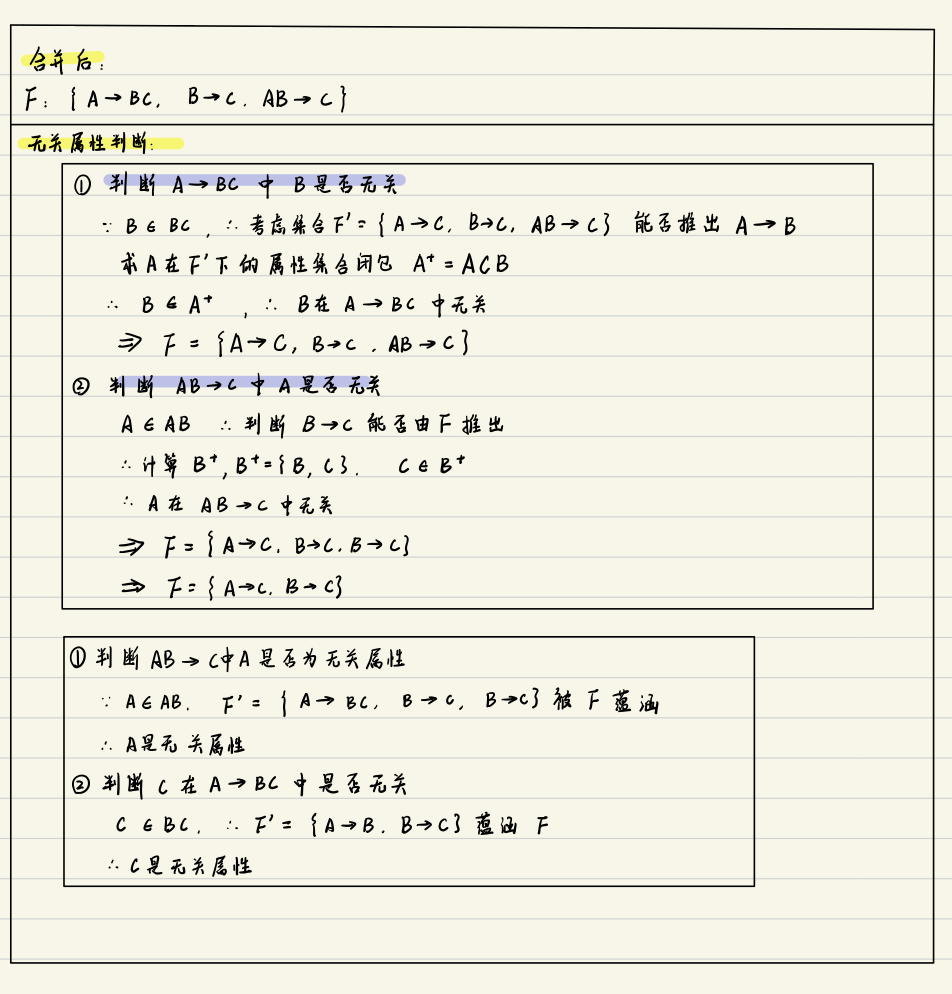 合并后:
F: { A→BC, B→C. AB→C }
无关属性判断:
① 判断 A→BC 中 B是否无关
∵ B∈BC , ∴ 考虑集合F'={ A→C, B→C, AB→C } 能否推出 A→B
求A在F'下的属性集合闭包 A⁺=ACB
∴ B∈A⁺ , ∴ B在 A→BC 中无关
⇒ F = {A→C, B→C . AB→C}
② 判断 AB→C 中 A是否无关
A∈AB ∴ 判断 B→C 能否由F推出
∴ 计算 B⁺, B⁺={B, C}. C∈B⁺
∴ A在 AB→C 中无关
⇒ F={ A→C. B→C. B→C}
⇒ F={ A→C. B→C}
① 判断 AB→C中A是否为无关属性
∵ A∈AB. F'= { A→BC, B→C, B→C} 被 F 蕴涵
∴ A是无关属性
② 判断 C 在 A→BC 中是否无关
C∈BC. ∴ F'= {A→B. B→C} 蕴涵 F
∴ C是无关属性